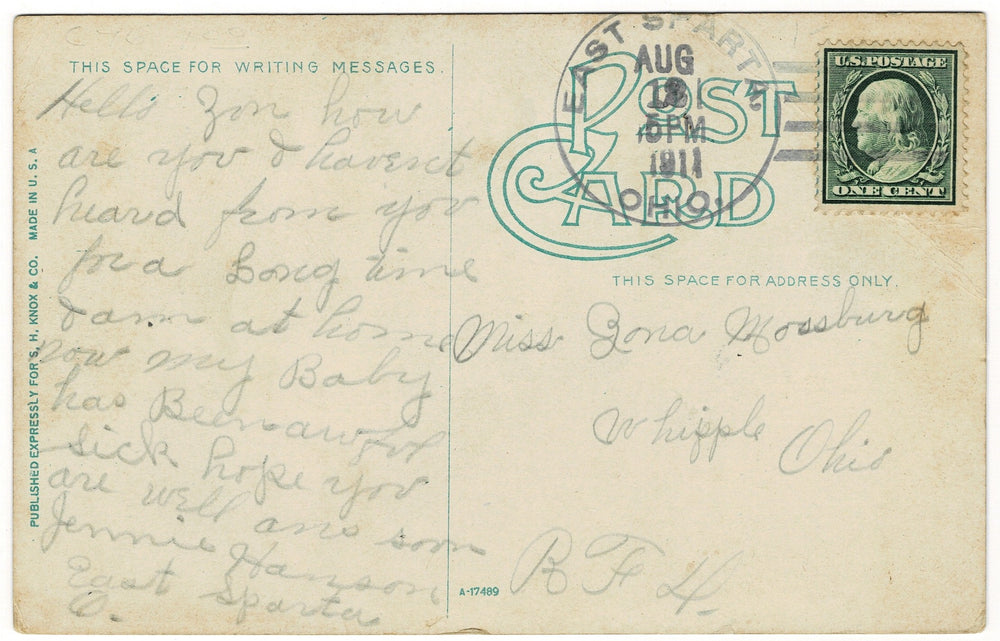 THIS SPACE FOR WRITING MESSAGES.
Hello Zon how
are you I havenst
heard from you
for a Long time
I am at home
now my Baby
has Been awfol
sick hope you
are well ans soon
Jennie Hanson
East Sparta
O.
PUBLISHED EXPRESSLY FOR S. H. KNOX & CO. MADE IN U. S. A
A-17489
POST
CARD
EAST SPARTA
AUG
5PM
1911
OHIO.
U.S. POSTAGE
ONE CENT
THIS SPACE FOR ADDRESS ONLY.
Miss Zona Mossburg
Whipple
Ohio
R F 4.